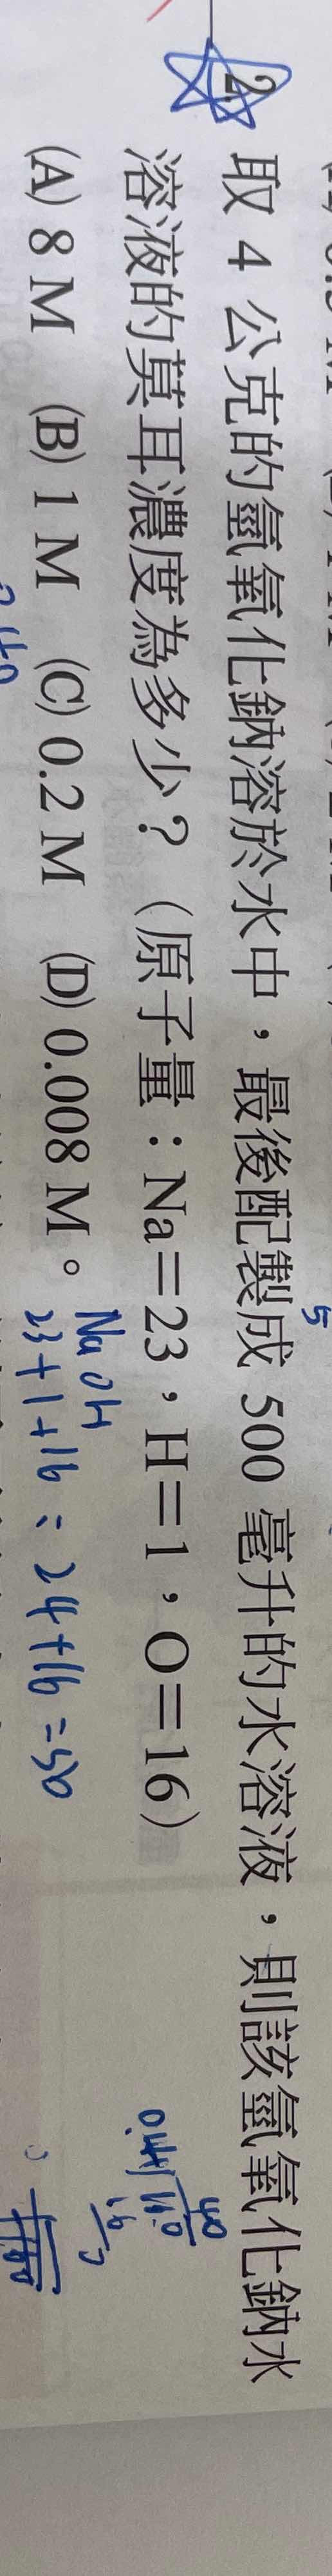 2. 取 4 公克的氫氧化鈉溶於水中，最後配製成 500 毫升的水溶液，則該氫氧化鈉水
溶液的莫耳濃度為多少？（原子量：Na＝23，H＝1，O＝16）
(A) 8 M (B) 1 M (C) 0.2 M (D) 0.008 M。
5
NaOH
23+1+16 = 24+16 =